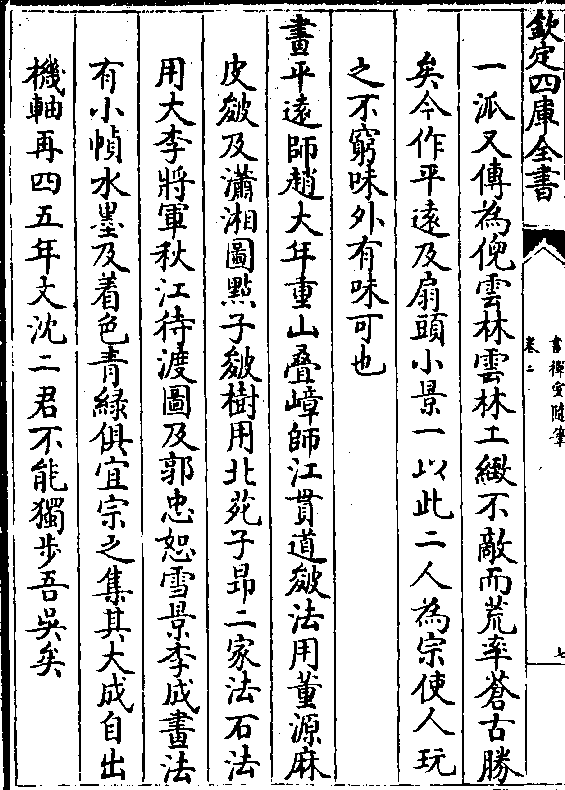 欽定四庫全書
畫禪室隨筆
卷二
七
一派又傳為倪雲林雲林工緻不敵而荒率蒼古勝
矣今作平遠及扇頭小景一以此二人為宗使人玩
之不窮味外有味可也
畫平遠師趙大年重山疊嶂師江貫道皴法用董源麻
皮皴及瀟湘圖點子皴樹用北苑子昂二家法石法
用大李將軍秋江待渡圖及郭忠恕雪景李成畫法
有小幀水墨及着色青綠俱宜宗之集其大成自出
機軸再四五年文沈二君不能獨步吾吳矣